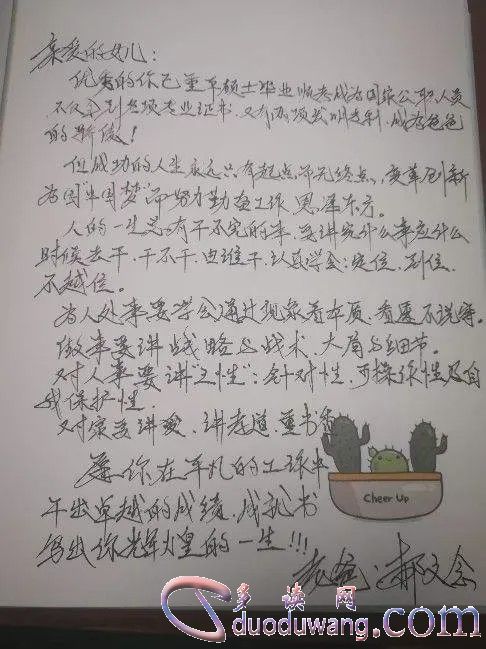 亲爱的女儿：
优秀的你已重点硕士毕业 顺考成为国家公职人员
不仅拿到各项专业证书，又有两项发明专利，成为爸爸
的骄傲！
但成功的人生永远只有起点而无终点，变革创新
为国"中国梦"而努力勤奋工作
人的一生总有干不完的事，要讲究什么事应什么
时候去干，干不干，由谁干，认真学会：定位、到位、
不越位。
为人处事要学会通过现象看本质，看透不说
做事要讲战略与战术，大局与细节。
对人事要讲"三性"：针对性、可操作性及自
我保护性
对家要讲爱、讲孝道、重书
愿你在平凡的工作中
干出卓越的成绩，成就书
写出你辉煌的一生!!!
老爸：郝文会
Cheer Up
多读网
duoduwang.com